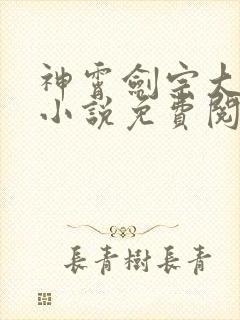 神霄劍宗大
小說免費閱
長青樹長青